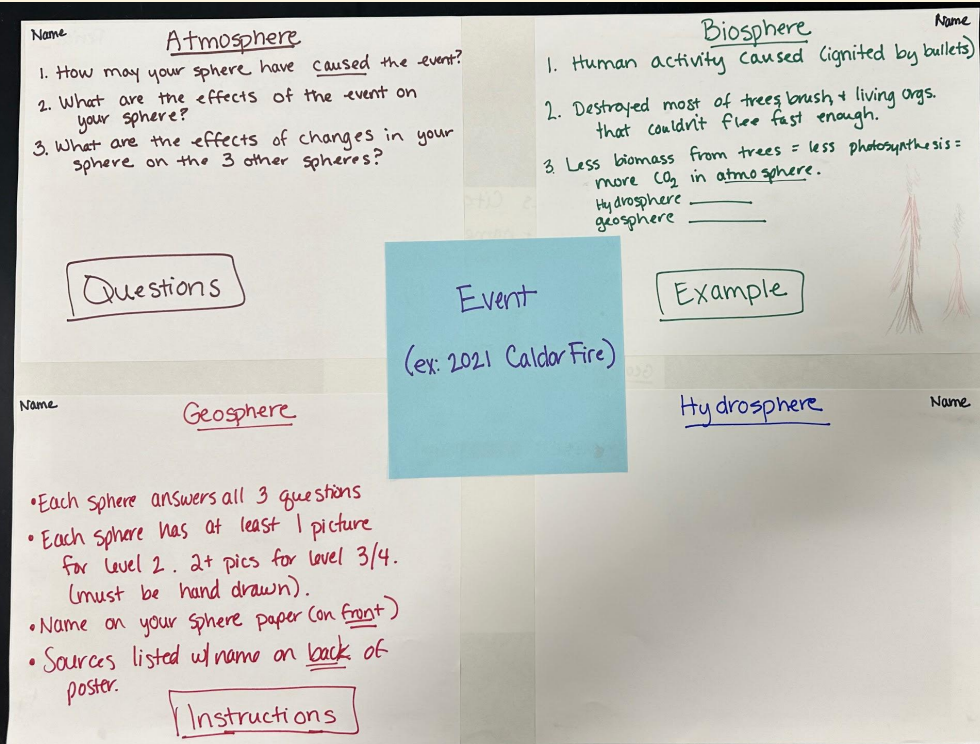 Name
Atmosphere
1. How may your sphere have caused the event?
2. What are the effects of the event on
your sphere?
3. What are the effects of changes in your
sphere on the 3 other spheres?
Questions
Biosphere
Name
1. Human activity caused (ignited by bullets)
2. Destroyed most of trees, brush, + living orgs.
that couldn't flee fast enough.
3. Less biomass from trees = less photosynthesis =
more CO₂ in atmosphere.
Hydrosphere ______
geosphere ______
Example
Event
(ex: 2021 Caldor Fire)
Name
Geosphere
•Each sphere answers all 3 questions
•Each sphere has at least 1 picture
for level 2. 2+ pics for level 3/4.
(must be hand drawn).
•Name on your sphere paper (on front)
•Sources listed w/name on back of
poster.
Instructions
Hydrosphere
Name